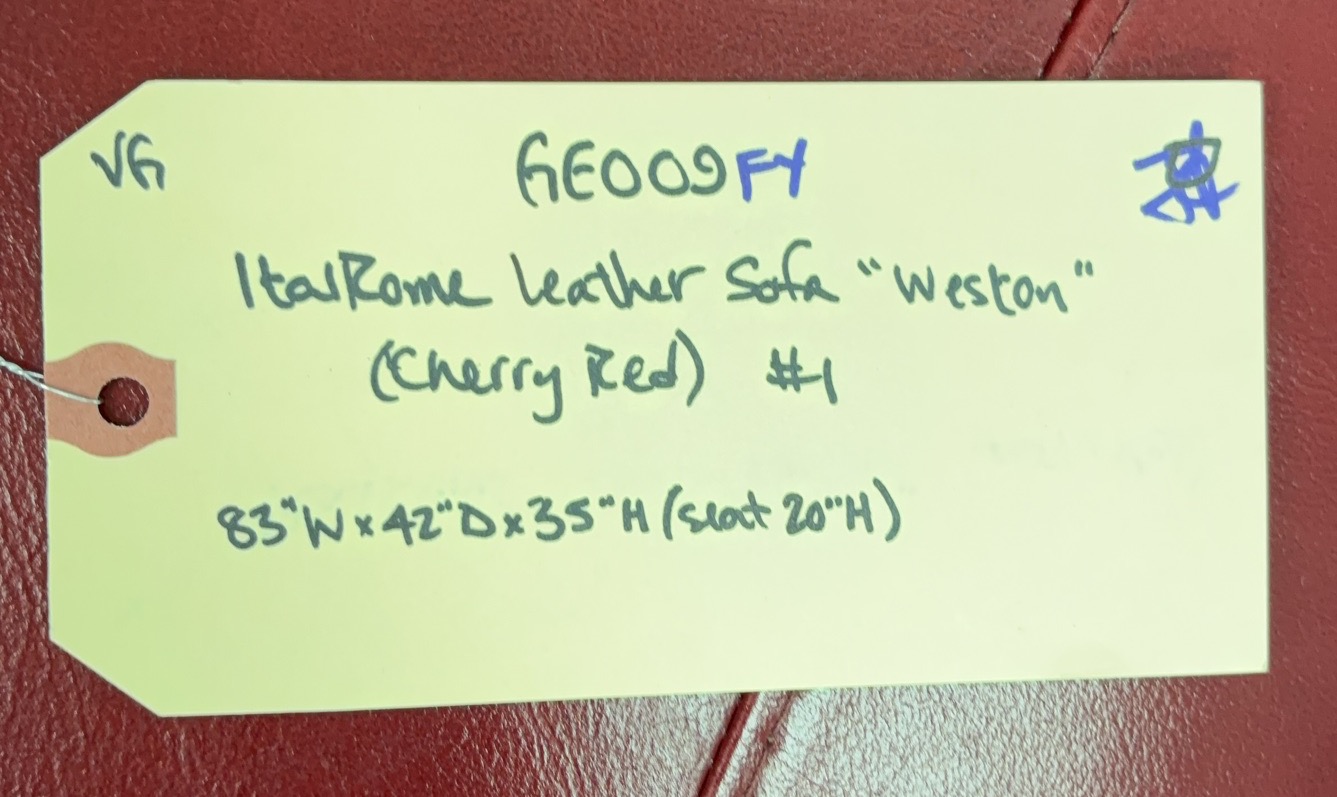 VG
GE009FY
ItalRome Leather Sofa "Weston"
(Cherry Red) #1
83"W x 42"D x 35"H (seat 20"H)